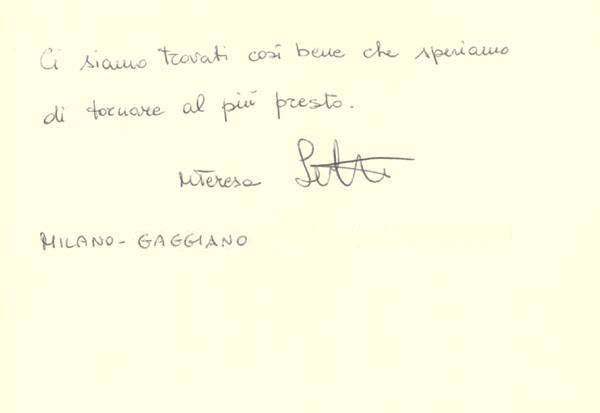 Ci siamo trovati così bene che speriamo
di tornare al più presto.
MTeresa
MILANO - GAGGIANO